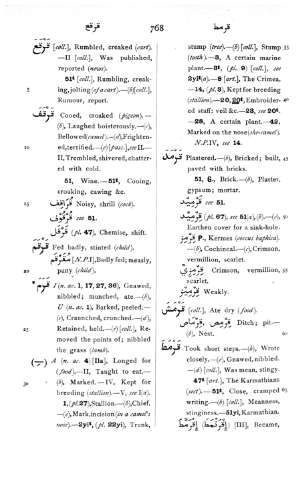 قرقع 768 قرمط
قَرْقَعَ [coll.], Rumbled, creaked (cart).
—II [coll.], Was published,
reported (news).
51⁶ [coll.], Rumbling, creak-
5 ing, jolting (of a cart).—(b)[coll.],
Rumour, report.
قَرْقَفَ Cooed, croaked (pigeon).—
(b), Laughed hoisterously.—(c),
Bellowed (camel).—(d), Frighten-
10 ed, terrified.—(e)[pass.], see II.—
II, Trembled, shivered, chatter-
ed with cold.
51, Wine.—51⁶, Cooing,
croaking, cawing &c.
15 Noisy, shrill (cock).
see 51.
(pl. 47), Chemise, shift.
Fed badly, stinted (child).
[N.P.I], Badly fed; measly,
20 puny (child).
قرم I (n. ac. 1, 17, 27, 36), Gnawed,
nibbled; munched, ate.—(b),
U (n. ac. 1), Barked, peeled.—
(c), Cranched, crunched.—(d),
25 Retained, held.—(e) [coll.], Re-
moved the points of; nibbled
the grass (lamb).
(—) A (n. ac. 4) [IIa], Longed for
(food).—II, Taught to eat.—
30 (b), Marked.—IV, Kept for
breeding (stallion).—V, see I(a).
1, (pl. 27), Stallion.—(b), Chief.
—(c), Mark, incision (in a camel's
nose).—2yi⁵, (pl. 22yi), Trunk,
stump (tree).—(b) [coll.], Stump 35
(tooth).—3, A certain marine
plant.—3⁶, (pl. 9) [coll.], see
2yi⁵(a).—8 [art.], The Crimea.
—14, (pl. 3), Kept for breeding
(stallion).—20, 20⁶, Embroider-
ed stuff: veil &c.—23, see 20⁶.
—28, A certain plant.—42,
Marked on the nose (she-camel).
N.P.IV, see 14.
Plastered.—(b), Bricked; built, 45
paved with bricks.
51, 6., Brick.—(b), Plaster,
gypsum; mortar.
see 51.
(pl. 67), see 51(a),(b).—(c), 50
Earthen cover for a sink-hole.
قرمز P., Kermes (coccus baphica).
—(b), Cochineal.—(c), Crimson,
vermillion, scarlet.
قرمزي Crimson, vermillion, 55
scarlet.
Weakly.
قرمش [coll.], Ate dry (food).
Ditch; pit.—
(b), Nest. 60
قرمط Took short steps.—(b), Wrote
closely.—(c), Gnawed, nibbled.
—(d) [coll.], Was mean, stingy.
47⁵ [art.], The Karmathians
(sect).—51⁶, Close, cramped 65
writing.—(b) [coll.], Meanness,
stinginess.—51yi, Karmathian.
[III], Became,